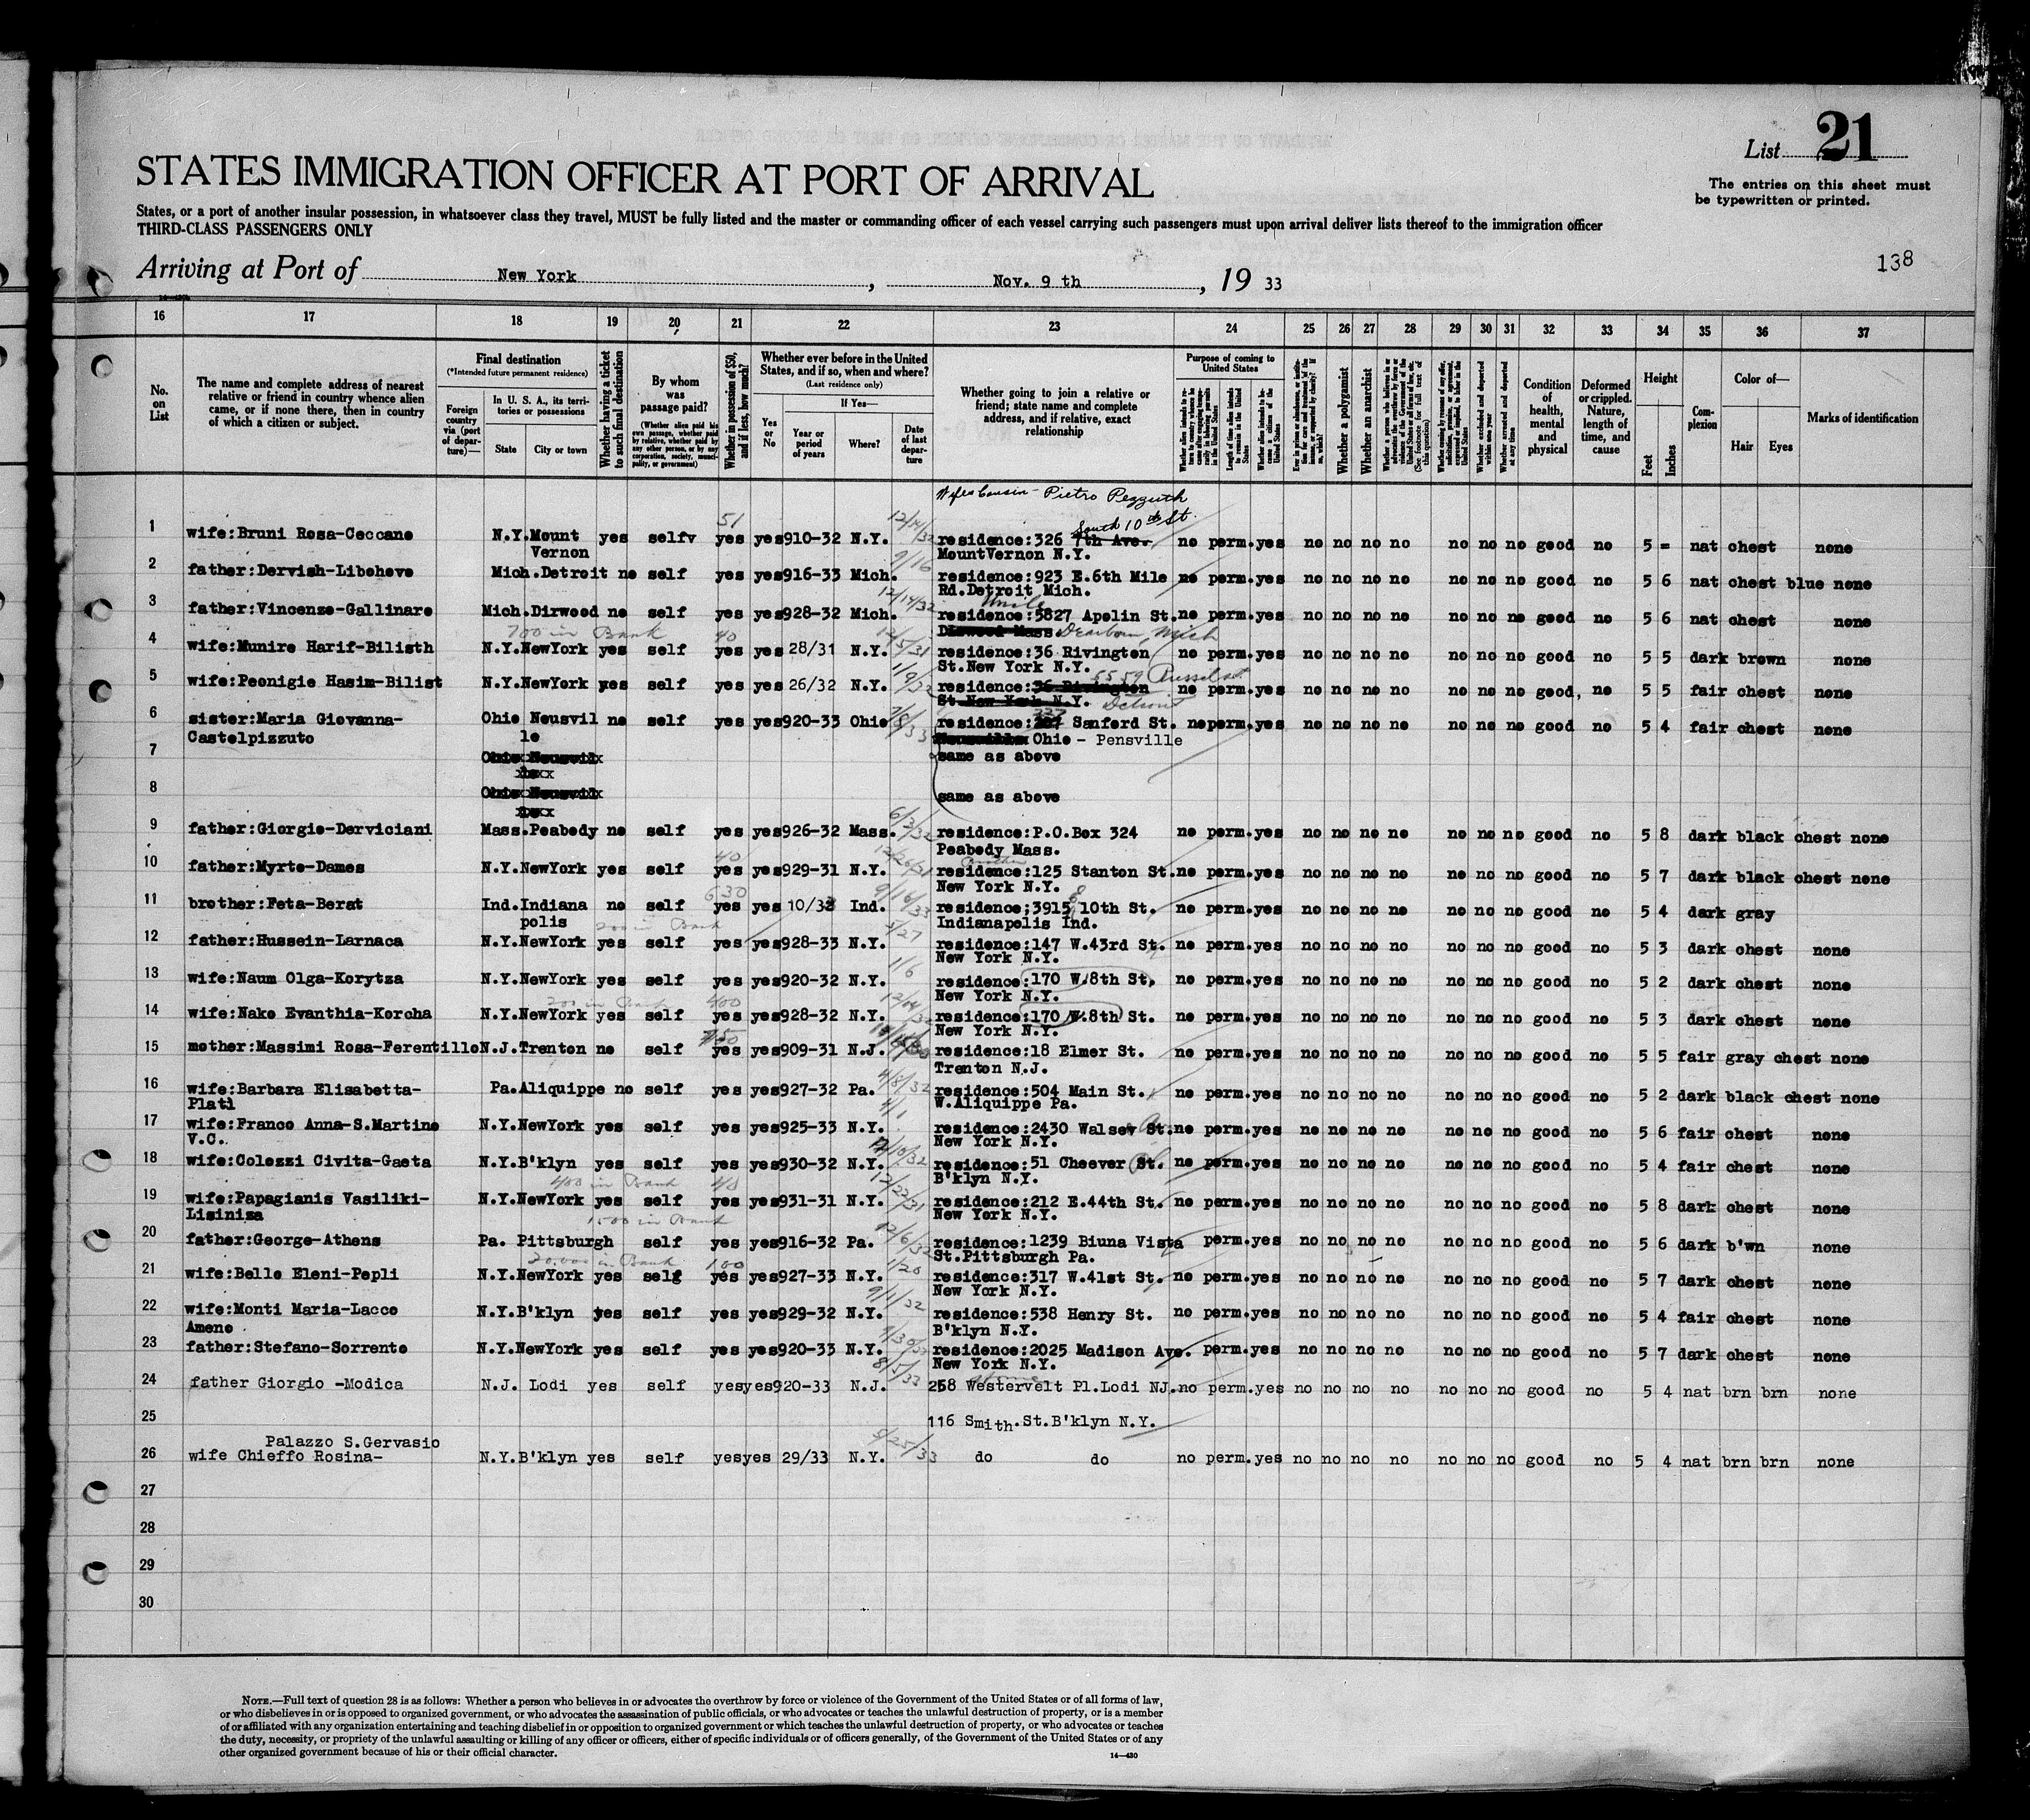 List 21
The entries on this sheet must
be typewritten or printed.
STATES IMMIGRATION OFFICER AT PORT OF ARRIVAL
States, or a port of another insular possession, in whatsoever class they travel, MUST be fully listed and the master or commanding officer of each vessel carrying such passengers must upon arrival deliver lists thereof to the immigration officer
THIRD-CLASS PASSENGERS ONLY
138
Arriving at Port of New York, Nov. 9 th, 19 33
16 17 18 19 20 21 22 23 24 25 26 27 28 29 30 31 32 33 34 35 36 37
No. on List
The name and complete address of nearest relative or friend in country whence alien came, or if none there, then in country of which a citizen or subject.
Final destination
(*Intended future permanent residence)
Foreign country via (port of departure)—
In U. S. A., its territories or possessions
State
City or town
Whether having a ticket to such final destination
By whom was passage paid?
(Whether alien paid his own passage, whether paid by relative, whether paid by any other person, or by any corporation, society, municipality, or government)
Whether in possession of $50, and if less, how much?
Whether ever before in the United States, and if so, when and where?
(Last residence only)
Yes or No
If Yes—
Year or period of years
Where?
Date of last departure
Whether going to join a relative or friend; state name and complete address, and if relative, exact relationship
Purpose of coming to United States
Length of time alien intends to remain in the United States
Whether alien intends to become a citizen of the United States
Whether a polygamist
Whether an anarchist
Whether excluded and deported within one year
Whether arrested and deported at any time
Condition of health, mental and physical
Deformed or crippled. Nature, length of time, and cause
Height
Feet
Inches
Complexion
Color of—
Hair Eyes
Marks of identification
Wifes Cousin - Pietro
South 10th St.
1 wife:Bruni Rosa-Ceccano N.Y.Mount yes selfv 51 yes yes910-32 N.Y. 12/14/32 residence:326 7th Ave. no perm.yes no no no no no no no good no 5 = nat chest none
Vernon MountVernon N.Y.
2 father:Dervish-Libohove Mich.Detroit no self yes yes916-33 Mich. 9/16 residence:923 E.6th Mile no perm.yes no no no no no no no good no 5 6 nat chest blue none
Rd.Detroit Mich.
3 father:Vincenzo-Gallinaro Mich.Dirwood no self yes yes928-32 Mich. 12/14/32 residence:5827 Apolin St.no perm.yes no no no no no no no good no 5 6 nat chest none
Uncle
Dirwood Mass Dearborn, Mich
700 in Bank 40
4 wife:Munire Harif-Bilisth N.Y.NewYork yes self yes yes 28/31 N.Y. residence:36 Rivington no perm.yes no no no no no no no good no 5 5 dark brown none
St.New York N.Y.
5 wife:Peonigie Hasim-Bilist N.Y.NewYork yes self yes yes 26/32 N.Y. 1/9/32 residence:36 Rivington no perm.yes no no no no no no no good, no 5 5 fair chest none
5559 Russel st
St.New York N.Y. Detroit
6 sister:Maria Giovanna- Ohio Neusvil no self yes yes920-33 Ohio residence: 337 Sanford St. noperm.yes no no no no no no no good no 5 4 fair chest none
Castelpizzuto le Ohio - Pensville
7 Ohio Neusvil same as above
8 Ohio Neusvil same as above
9 father:Giorgio-Derviciani Mass.Peabody no self yes yes926-32 Mass. 6/3/32 residence:P.O.Box 324 no perm.yes no no no no no no no good no 5 8 dark black chest none
Peabody Mass.
10 father:Myrto-Dames N.Y.NewYork yes self 40 yes yes929-31 N.Y. 12/26/31 residence:125 Stanton St.no perm.yes no no no no no no no good no 5 7 dark black chest none
New York N.Y.
11 brother:Feta-Berat Ind.Indiana no self 630 yes yes 10/33 Ind. 9/16/33 residence;3915 10th St. no perm.yes no no no no no no no good no 5 4 dark gray
polis Indianapolis Ind.
200 in Bank
12 father:Hussein-Larnaca N.Y.NewYork yes self yes yes928-33 N.Y. 5/27 residence:147 W.43rd St. no perm.yes no no no no no no no good no 5 3 dark chest none
New York N.Y.
13 wife:Naum Olga-Korytza N.Y.NewYork yes self yes yes920-32 N.Y. 1/6 residence:170 W.8th St. no perm.yes no no no no no no no good no 5 2 dark chest none
New York N.Y.
200 in Bank 400
14 wife:Nako Evanthia-Korcha N.Y.NewYork yes self yes yes928-32 N.Y. 12/14/32 residence:170 W.8th St. no perm.yes no no no no no no no good no 5 3 dark chest none
New York N.Y.
15 mother:Massimi Rosa-Ferentillo N.J.Trenton no self yes yes909-31 N.J. residence:18 Elmer St. no perm.yes no no no no no no no good no 5 5 fair gray chest none
Trenton N.J.
16 wife:Barbara Elisabetta- Pa.Aliquippe no self yes yes927-32 Pa. 4/8/32 residence:504 Main St. no perm.yes no no no no no no no good no 5 2 dark black chest none
Platl W.Aliquippe Pa.
17 wife:Franco Anna-S.Martino N.Y.NewYork yes self yes yes925-33 N.Y. 4/1 residence:2430 Walsev St.no perm.yes no no no no no no no good no 5 6 fair chest none
V.C. New York N.Y.
18 wife:Colozzi Civita-Gaeta N.Y.B'klyn yes self yes yes930-32 N.Y. residence:51 Cheever St. no perm.yes no no no no no no no good no 5 4 fair chest none
B'klyn N.Y.
400 in Bank 40
19 wife:Papagianis Vasiliki- N.Y.NewYork yes self yes yes931-31 N.Y. 12/22/31 residence:212 E.44th St. no perm.yes no no no no no no no good no 5 8 dark chest none
Lisiniza New York N.Y.
1500 in Bank
20 father:George-Athens Pa. Pittsburgh self yes yes916-32 Pa. 12/6/32 residence:1239 Biuna Vista perm.yes no no no no no no no good no 5 6 dark b'wn none
St.Pittsburgh Pa.
20.000 in Bank 100
21 wife:Bello Eleni-Pepli N.Y.NewYork yes self yes yes927-33 N.Y. 1/20 residence:317 W.41st St. no perm.yes no no no no no no no good no 5 7 dark chest none
New York N.Y.
22 wife:Monti Maria-Lacco N.Y.B'klyn yes self yes yes929-32 N.Y. 9/1/32 residence:538 Henry St. no perm.yes no no no no no no no good no 5 4 fair chest none
Ameno B'klyn N.Y.
23 father:Stefano-Sorrento N.Y.NewYork yes self yes yes920-33 N.Y. residence:2025 Madison Ave. perm.yes no no no no no no no good no 5 7 dark chest none
New York N.Y.
24 father Giorgio -Modica N.J. Lodi yes self yesyes920-33 N.J. 8/5/33 258 Westervelt Pl.Lodi NJ.no perm.yes no no no no no no no good no 5 4 nat brn brn none
25 116 Smith.St.B'klyn N.Y.
Palazzo S.Gervasio
26 wife Chieffo Rosina- N.Y.B'klyn yes self yesyes 29/33 N.Y. 5/25/33 do do no perm.yes no no no no no no no good no 5 4 nat brn brn none
27
28
29
30
NOTE.—Full text of question 28 is as follows: Whether a person who believes in or advocates the overthrow by force or violence of the Government of the United States or of all forms of law,
or who disbelieves in or is opposed to organized government, or who advocates the assassination of public officials, or who advocates or teaches the unlawful destruction of property, or is a member
of or affiliated with any organization entertaining and teaching disbelief in or opposition to organized government or which teaches the unlawful destruction of property, or who advocates or teaches
the duty, necessity, or propriety of the unlawful assaulting or killing of any officer or officers, either of specific individuals or of officers generally, of the Government of the United States or of any
other organized government because of his or their official character.
14—430